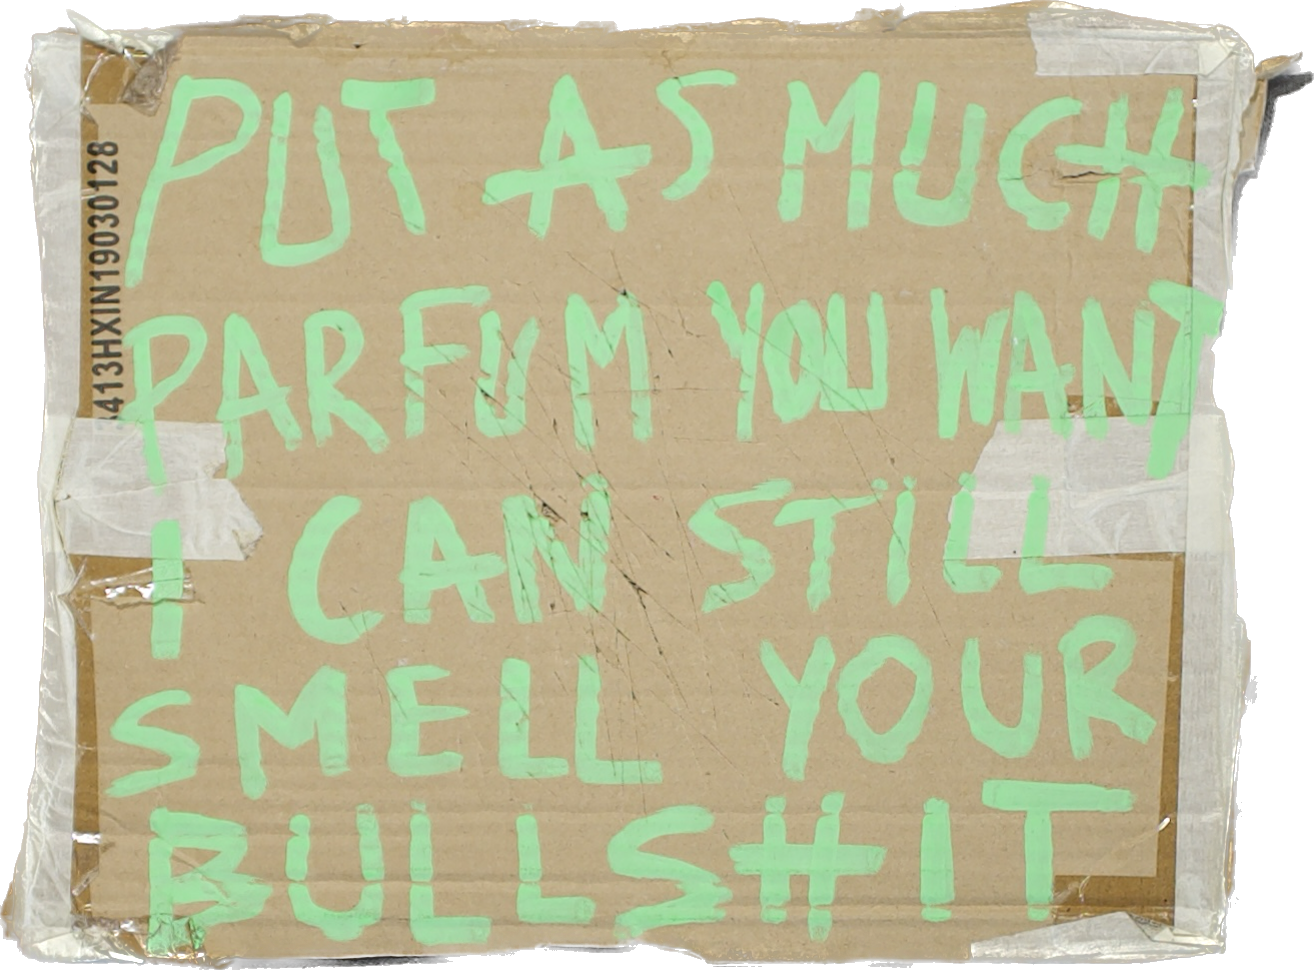 PUT AS MUCH
PARFUM YOU WANT
I CAN STILL
SMELL YOUR
BULLSHIT
413HXIN19030128